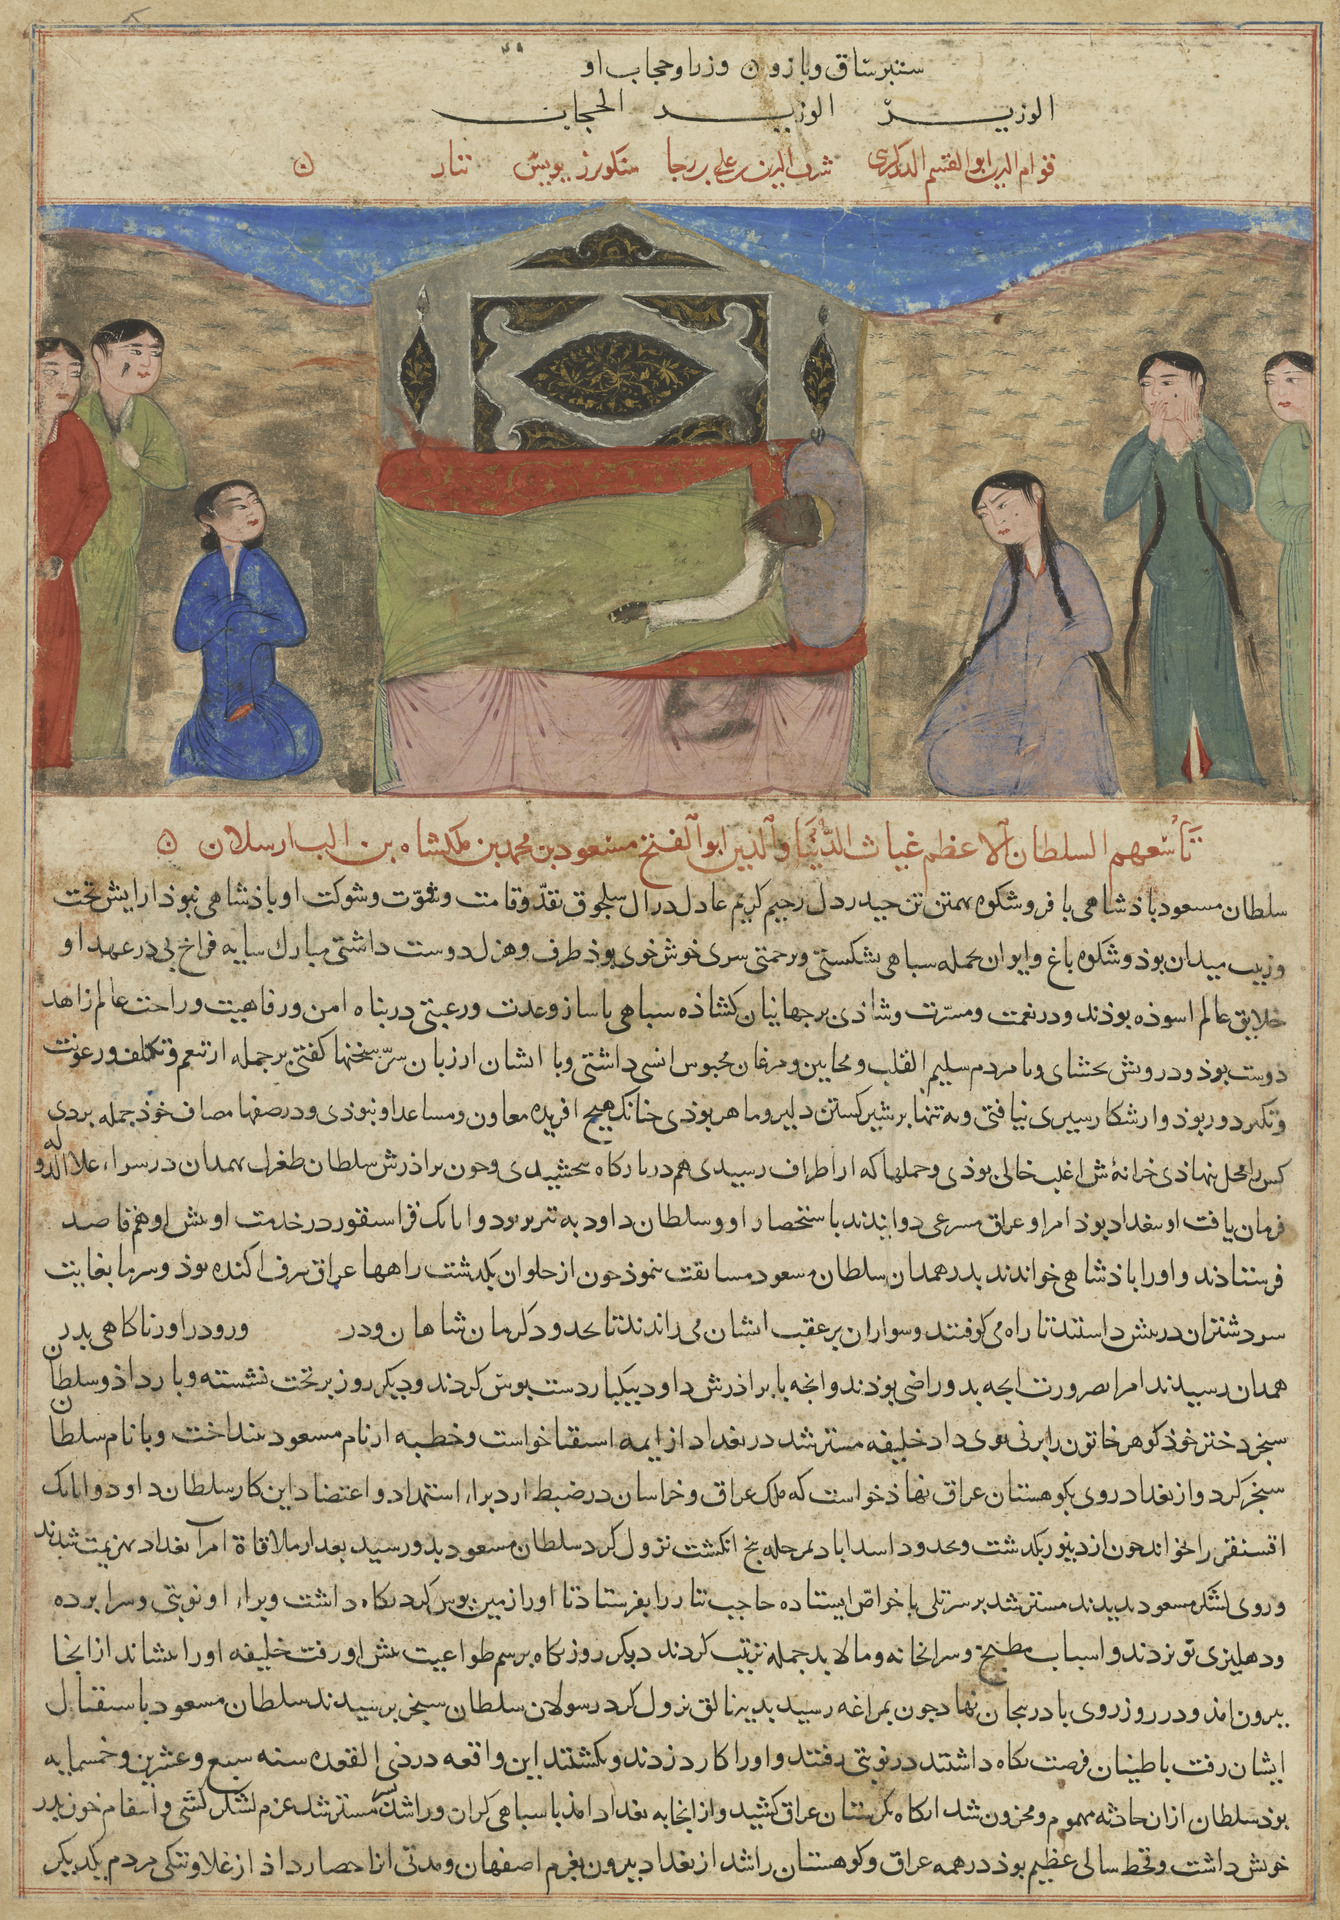 سنبر ساق و بازو ن وزرا و حجاب او
الوزیر الوزیر الحجاب
قوام الدین ابو القسم الدرکزی شرف الدین علی بن رجا منکوبرز تتار ن
تاسعهم السلطان الاعظم غیاث الدنیا و الدین ابو الفتح مسعود بن محمد بن ملکشاه بن الب ارسلان ن
سلطان مسعود باذشاهی با فر و شکوه بهمتن تن حیدر دل رحیم کریم عادل در ال سلجوق بقد و قامت و قوت و شوکت او باذشاهی نبوذ ارایش تخت
و زیب میدان بوذ و شکوه باغ و ایوان بحمله سباهی بشکستی و برحمتی سری خوش خوی بوذ ظرف و هزل دوست داشتی مبارک سایه فراخ بی در عهد او
خلایق عالم اسوذه بوذند و در نعمت و مسرت و شاذی بر جهانیان کشاذه سباهی با ساز و عدت و رعیتی در بناه امن و رفاهیت و راحت عالم زاهد
دوست بوذ و درویش بخشای و با مردم سلیم القلب و مجانین و مرغان محبوس انسی داشتی و با ایشان از زبان سر سخنها کفتی بر جمله از تنعم و تکلف و رعونت
و تکبر دور بوذ و از شکار سیری نیافتی و به تنها بر شیر کشتن دلیر و ماهر بوذی جنانک هیج افریده معاون و مساعد او نبوذی و در صفها مصاف خوذ حمله بردی
کس را محل ننهاذی خزانه ش اغلب خالی بوذی و حملها که از اطراف رسیدی هم در بارکاه بخشیدی و جون براذرش سلطان طغرل بهمدان در سراء علا الدوله
فرمان یافت او ببغداد بوذ امرا و عراق مسرعی دوانیدند باستحضار او و سلطان داود به تبریز بود و اتابک قراسنقور در خدمت او بیش او هم قاصد
فرستادند و او را باذشاهی خواندند بدر همدان سلطان مسعود مسابقت نموذ جون از حلوان بکذشت راهها عراق ببرف اکنده بوذ و سرما بغایت
سرد شتران در بیش داشتند تا راه می کوفتند و سواران بر عقب ایشان می راندند تا بحدود کرمان شاهان و در ورود راور ناکاهی بدر
همدان رسیدند امرا بضرورت ایجه بدو راضی بوذند و انجه با براذرش داود بیکبار دست بوس کردند و دیکر روز بر تخت نشسته و بار داذ و سلطان
سنجر دختر خوذ کوهر خاتون را بزنی بوی داد خلیفه مسترشد در بغداد از ایمه استفتا خواست و خطبه از نام مسعود بینداخت و با نام سلطان
سنجر کرد و از بغداد روی بکوهستان عراق نهاذ خواست که ملک عراق و خراسان در ضبط ارد براء استمداد و اعتضاد این کار سلطان داود و اتابک
اقسنقر را بخواند جون از دینور بکذشت و بحدود اسداباد بمرحله بنج انکشت نزول کرد سلطان مسعود بدو رسید بعد از ملاقاة امرآ بغداد بهزیمت شدند
و روی لشکر مسعود بدیدند مسترشد بر سر تلی با خواص ایستاده حاجب تتار را بفرستاد تا او را زمین بوس کرد نکاه داشت و براء او نوبتی و سرابرده
و دهلیزی نو بزدند و اسباب مطبخ و شرابخانه و ما لا بد جمله ترتیب کردند دیکر روز بکاه برسم طواعیت بیش او رفت خلیفه او را بنشاند از انجا
بیرون امذ و در روز روی باذربیجان نهاد جون بمراغه رسید بدیه نالق نزول کرد رسولان سلطان سنجر برسیدند سلطان مسعود باستقبال
ایشان رفت باطنیان فرصت نکاه داشتند در نوبتی رفتند و او را کارد زدند و بکشتند این واقعه در ذی القعده سنه سبع و عشرین و خمسمایه
بوذ سلطان از ان حادثه مهموم و محزون شد انکاه بکرستان عراق کشید و از انجا به بغداد امذ با سباهی کران و راشد بسر مسترشد عزم لشکر کشی و انتقام خون بدر
خویش داشت و قحط سالی عظیم بوذ در همه عراق و کوهستان راشد از بغداد بیرون بعزم اصفهان و مدتی انرا حصار داذ از غلا و تنکی مردم یکدیکر